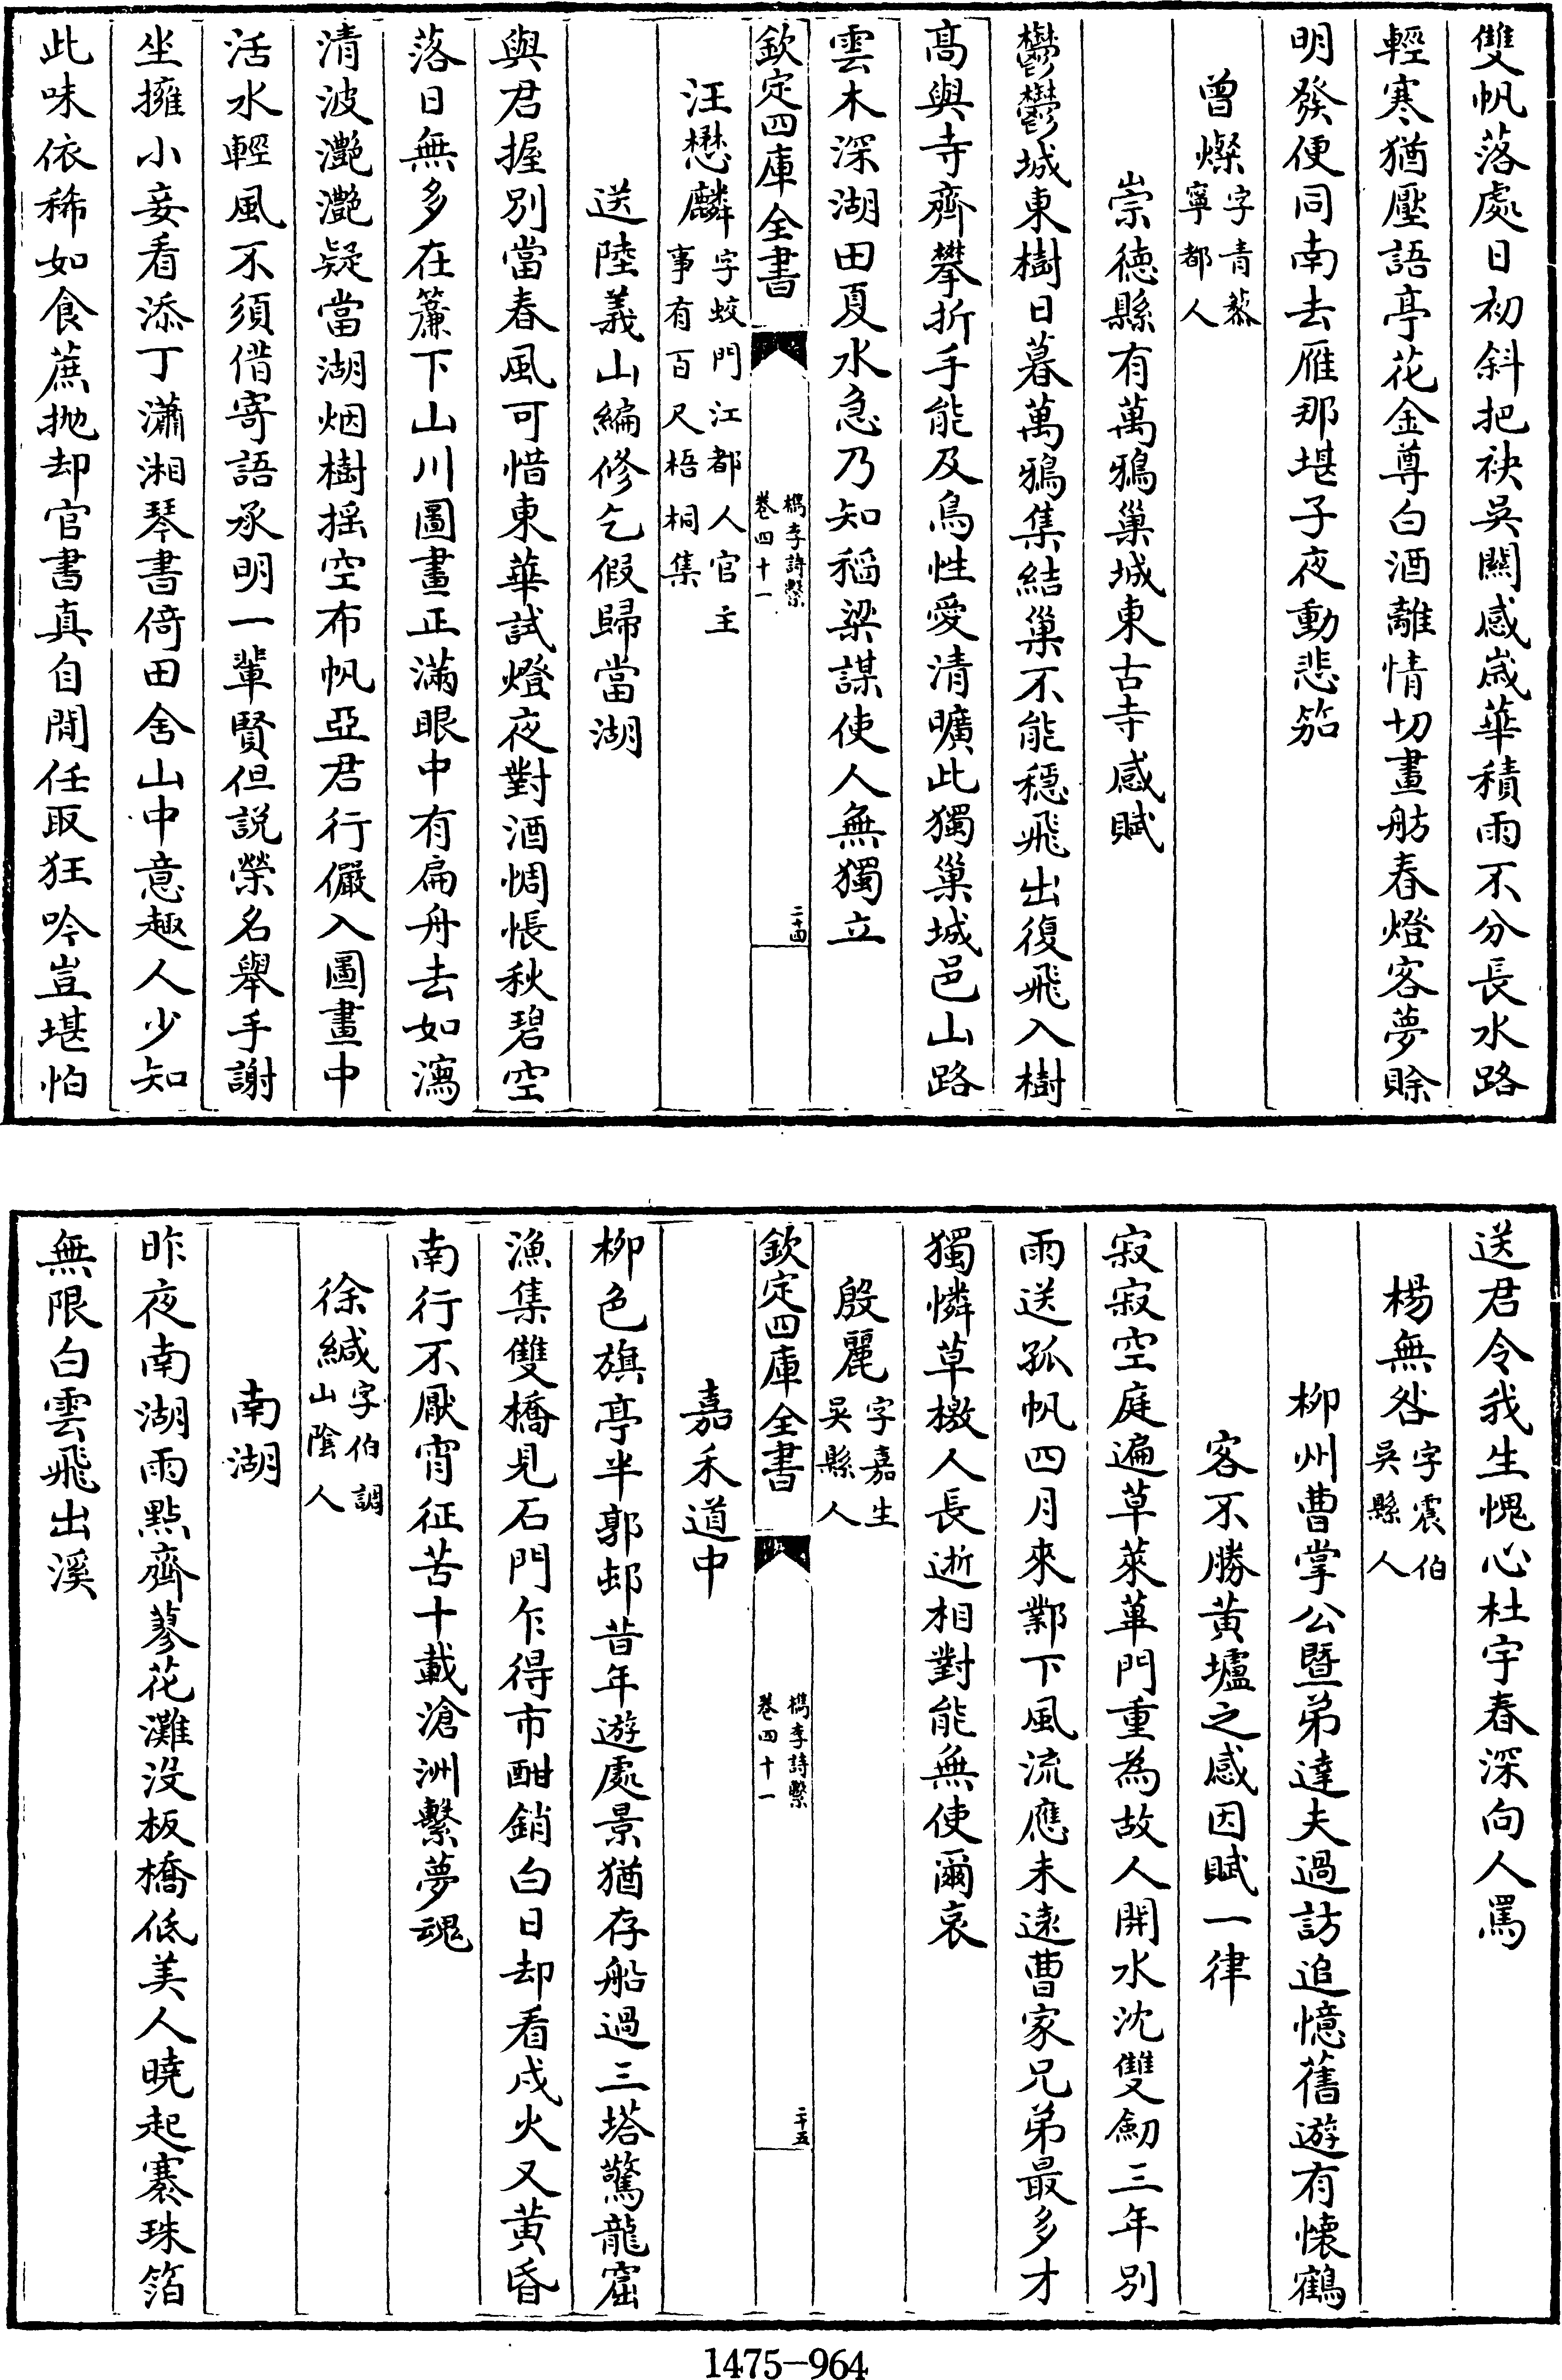 雙帆落處日初斜把袂吳闗感嵗華積雨不分長水路
輕寒猶壓語亭花金尊白酒離情切畫舫春燈客夢賒
明發便同南去雁那堪子夜動悲笳
曾燦字青藜
寧都人
崇徳縣有萬鴉巢城東古寺感賦
鬱鬱城東樹日暮萬鴉集結巢不能穏飛出復飛入樹
髙與寺齊攀折手能及鳥性愛清曠此獨巢城邑山路
雲木深湖田夏水急乃知稻梁謀使人無獨立
欽定四庫全書
檇李詩繫
卷四十一
二十四
汪懋麟字蛟門江都人官主
事有百尺梧桐集
送陸義山編修乞假歸當湖
與君握别當春風可惜東華試燈夜對酒惆悵秋碧空
落日無多在簾下山川圖畫正滿眼中有扁舟去如瀉
清波灔灔疑當湖烟樹揺空布帆亞君行儼入圖畫中
活水輕風不須借寄語承明一輩賢但説榮名舉手謝
坐擁小妾看添丁瀟湘琴書倚田舍山中意趣人少知
此味依稀如食蔗抛却官書真自閒任取狂吟豈堪怕
送君令我生愧心杜宇春深向人罵
楊無咎字震伯
吳縣人
柳州曹掌公暨弟達夫過訪追憶舊遊有懐鶴
客不勝黄壚之感因賦一律
寂寂空庭遍草萊蓽門重為故人開水沈雙劒三年别
雨送孤帆四月來鄴下風流應未遠曹家兄弟最多才
獨憐草檄人長逝相對能無使爾哀
欽定四庫全書
檇李詩繫
卷四十一
二十五
殷麗字嘉生
吳縣人
嘉禾道中
柳色旗亭半郭邨昔年遊處景猶存船過三塔驚龍窟
漁集雙橋見石門乍得市酣銷白日却看戍火又黄昏
南行不厭宵征苦十載滄洲繫夢魂
徐緘字伯調
山隂人
南湖
昨夜南湖雨㸃齊蓼花灘沒板橋低美人曉起褰珠箔
無限白雲飛出溪
1475-964